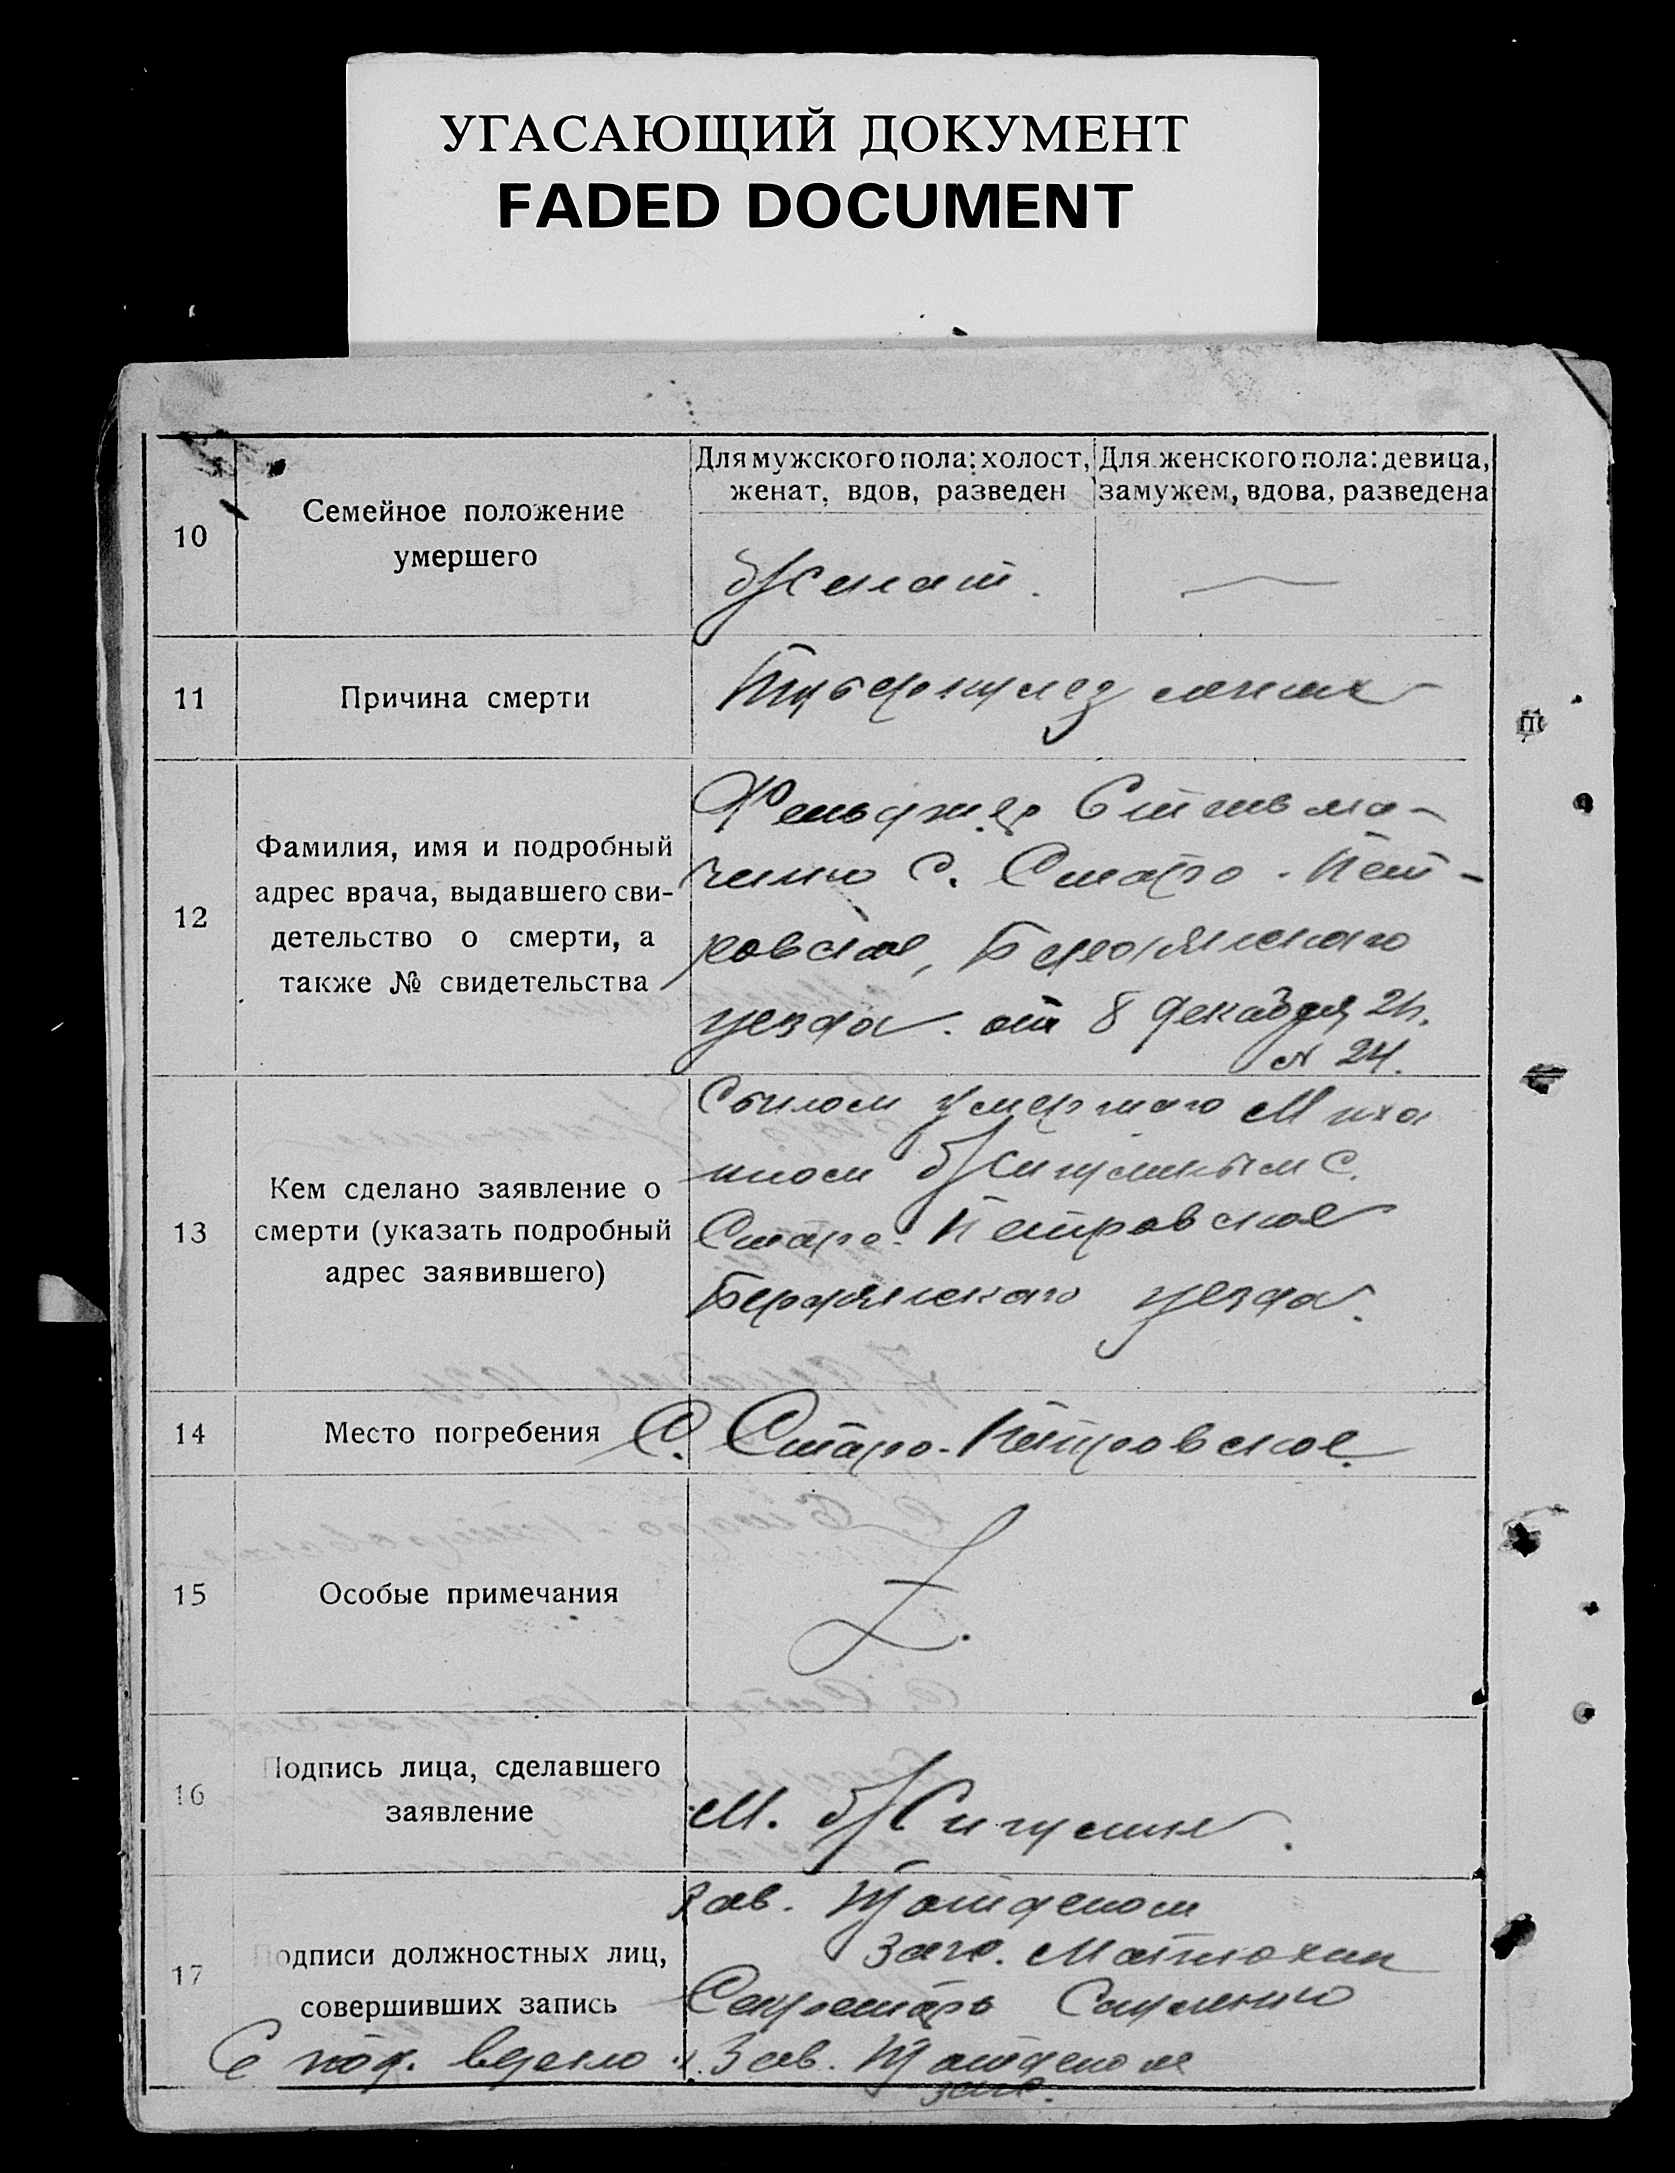 УГАСАЮЩИЙ ДОКУМЕНТ
FADED DOCUMENT
10
Семейное положение
умершего
Для мужского пола: холост,
женат, вдов, разведен
Для женского пола: девица,
замужем, вдова, разведена
Женат.
11
Причина смерти
Туберкулез легких
12
Фамилия, имя и подробный
адрес врача, выдавшего сви-
детельство о смерти, а
также № свидетельства
Фельдшер
с. Старо-Пет-
ровское, Бердянского
уезда. от 8 декабря 24.
№ 24.
13
Кем сделано заявление о
смерти (указать подробный
адрес заявившего)
Сыном умершаго Миха
илом Жигулиным с.
Старо-Петровское
Бердянского уезда.
14
Место погребения
С. Старо-Петровское.
15
Особые примечания
Z.
16
Подпись лица, сделавшего
заявление
М. Жигулин.
17
Подписи должностных лиц,
совершивших запись
Зав. 
загс. Матюхин
Секретарь
С под. верно:
Зав.
загс.